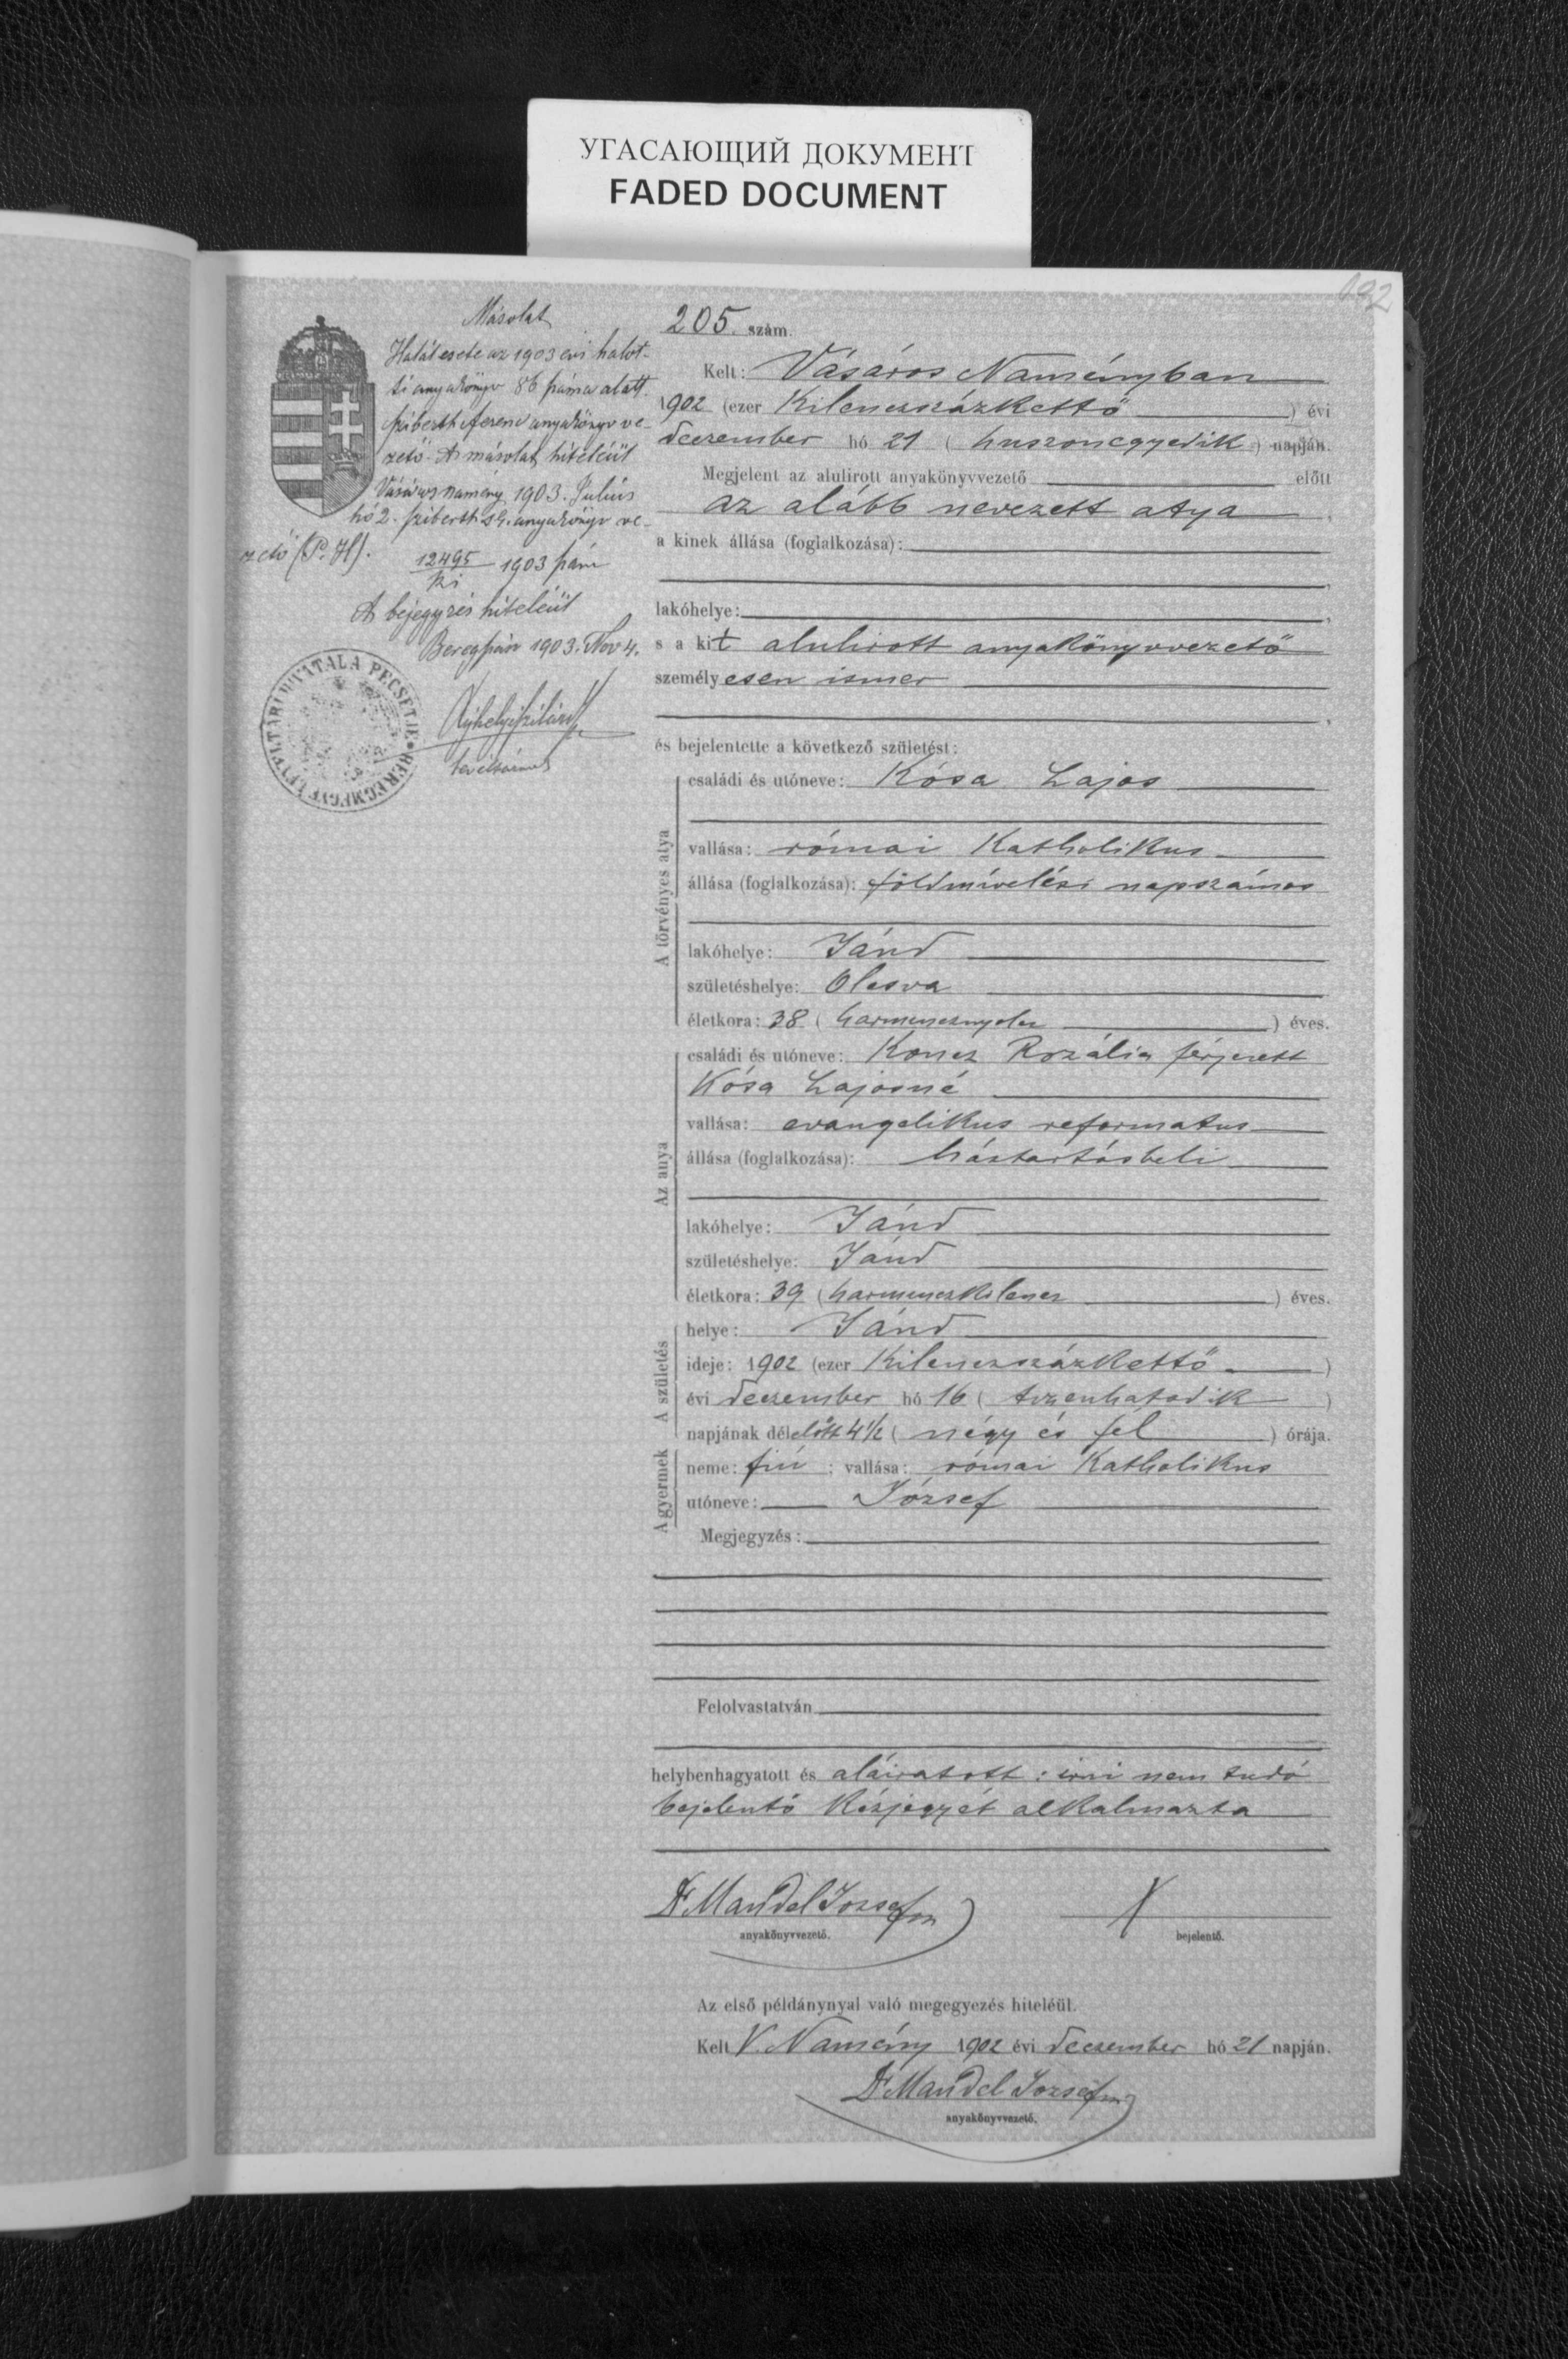 УГАСАЮЩИЙ ДОКУМЕНТ
FADED DOCUMENT
192
Másolat
Halálesete az 1903 évi halot-
ti anyakönyv 86 száma alatt.
Sziberth Ferenc anyakönyv ve-
zető. A másolat hiteléül
Vásárosnamény 1903. Julius
hó 2. Sziberth anyakönyv ve-
zető (P. H).
12495 1903 szám
ki
A bejegyzés hiteléül
Beregszász 1903. Nov 4.
levéltárnok
205. szám.
Kelt: Vásáros Naményban
1902 (ezer kilenczszázkettő) évi
deczember hó 21 (huszonegyedik) napján.
Megjelent az alulirott anyakönyvvezető előtt
az alább nevezett atya
a kinek állása (foglalkozása):
lakóhelye:
s a kit alulirott anyakönyvvezető
személyesen ismer
és bejelentette a következő születést:
A törvényes atya
családi és utóneve: Kósa Lajos
vallása: római katholikus
állása (foglalkozása): földmívelési napszámos
lakóhelye: Jánd
születéshelye: Olcsva
életkora: 38 (harmincznyolcz) éves.
Az anya
családi és utóneve: Koncz Rozália férjezett
Kósa Lajosné
vallása: evangelikus reformatus
állása (foglalkozása): háztartásbeli
lakóhelye: Jánd
születéshelye: Jánd
életkora: 39 (harminczkilencz) éves.
A születés
helye: Jánd
ideje: 1902 (ezer kilenczszázkettő)
évi deczember hó 16 (tizenhatodik)
napjának délelőtt 4½ (négy és fél) órája.
A gyermek
neme: fiú; vallása: római katholikus
utóneve: József
Megjegyzés:
Felolvastatván
helybenhagyatott és aláiratott: irni nem tudó
bejelentő kézjegyét alkalmazta
Dr Mandel József X
anyakönyvvezető. bejelentő.
Az első példánynyal való megegyezés hiteléül.
Kelt V. Namény 1902 évi deczember hó 21 napján.
Dr Mandel József
anyakönyvvezető.